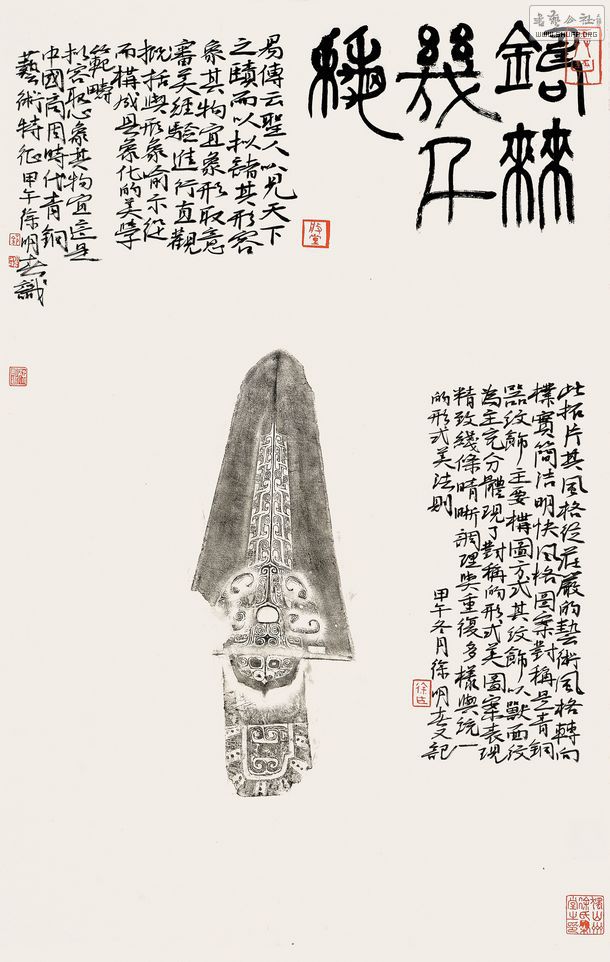 鑄棘
幾千
易傳云聖人以見天下
之賾而以擬諸其形容
象其物宜象形取意
審美經驗進行直觀
概括與形象喻示從
而構成具象化的美學
範疇
擬容取心象其物宜這是
中國商周時代青銅
藝術特征甲午徐明春識
此拓片其風格從莊嚴的藝術風格轉向
樸實簡潔明快風格圖案對稱是青銅
器紋飾主要構圖方式其紋飾以獸面紋
為主充分體現了對稱的形式美圖案表現
精致綫條晴晰調理與重復多樣與統一
的形式美法則
甲午冬月徐明春又記
徐氏